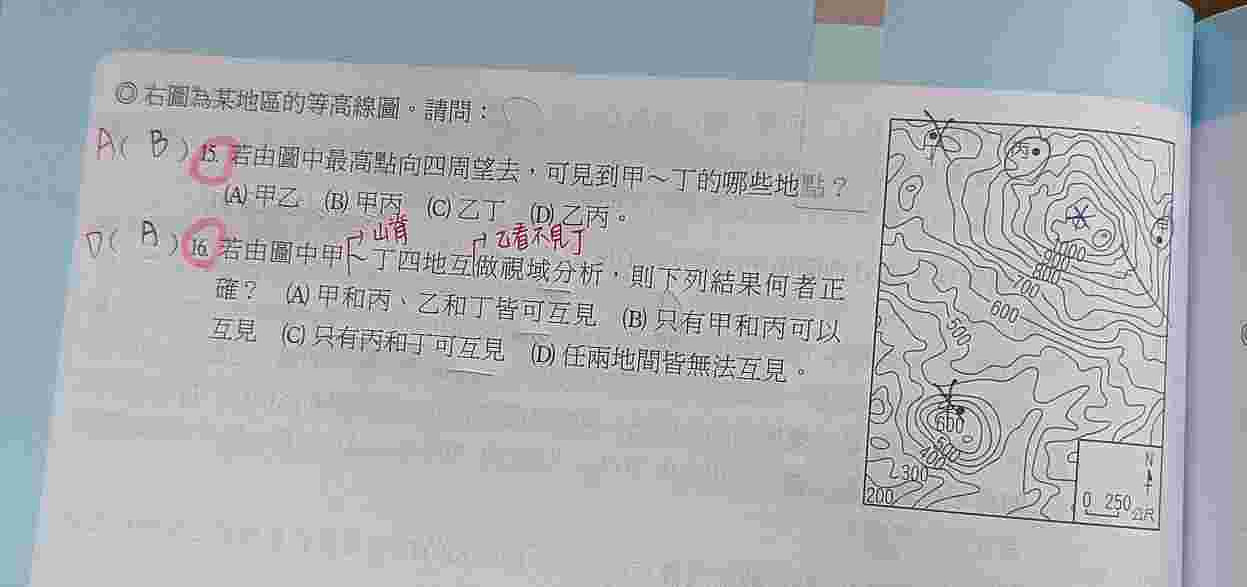 ◎右圖為某地區的等高線圖。請問：
A( B ) 15. 若由圖中最高點向四周望去，可見到甲～丁的哪些地點？
(A) 甲乙 (B) 甲丙 (C) 乙丁 (D) 乙丙。
→山背 →乙看不見丁
D( A ) 16. 若由圖中甲～丁四地互做視域分析，則下列結果何者正
確？ (A) 甲和丙、乙和丁皆可互見 (B) 只有甲和丙可以
互見 (C) 只有丙和丁可互見 (D) 任兩地間皆無法互見。
丙
700
600
500
600
500
400
300
200
N
0 250公尺